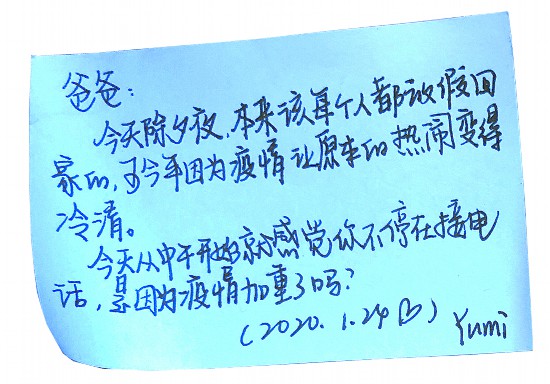 爸爸：
今天除夕夜，本来该每个人都放假回
家的，可今年因为疫情让原来的热闹变得
冷清。
今天从中午开始就感觉你不停在接电
话，是因为疫情加重了吗？
(2020.1.24 ♡) Yumi